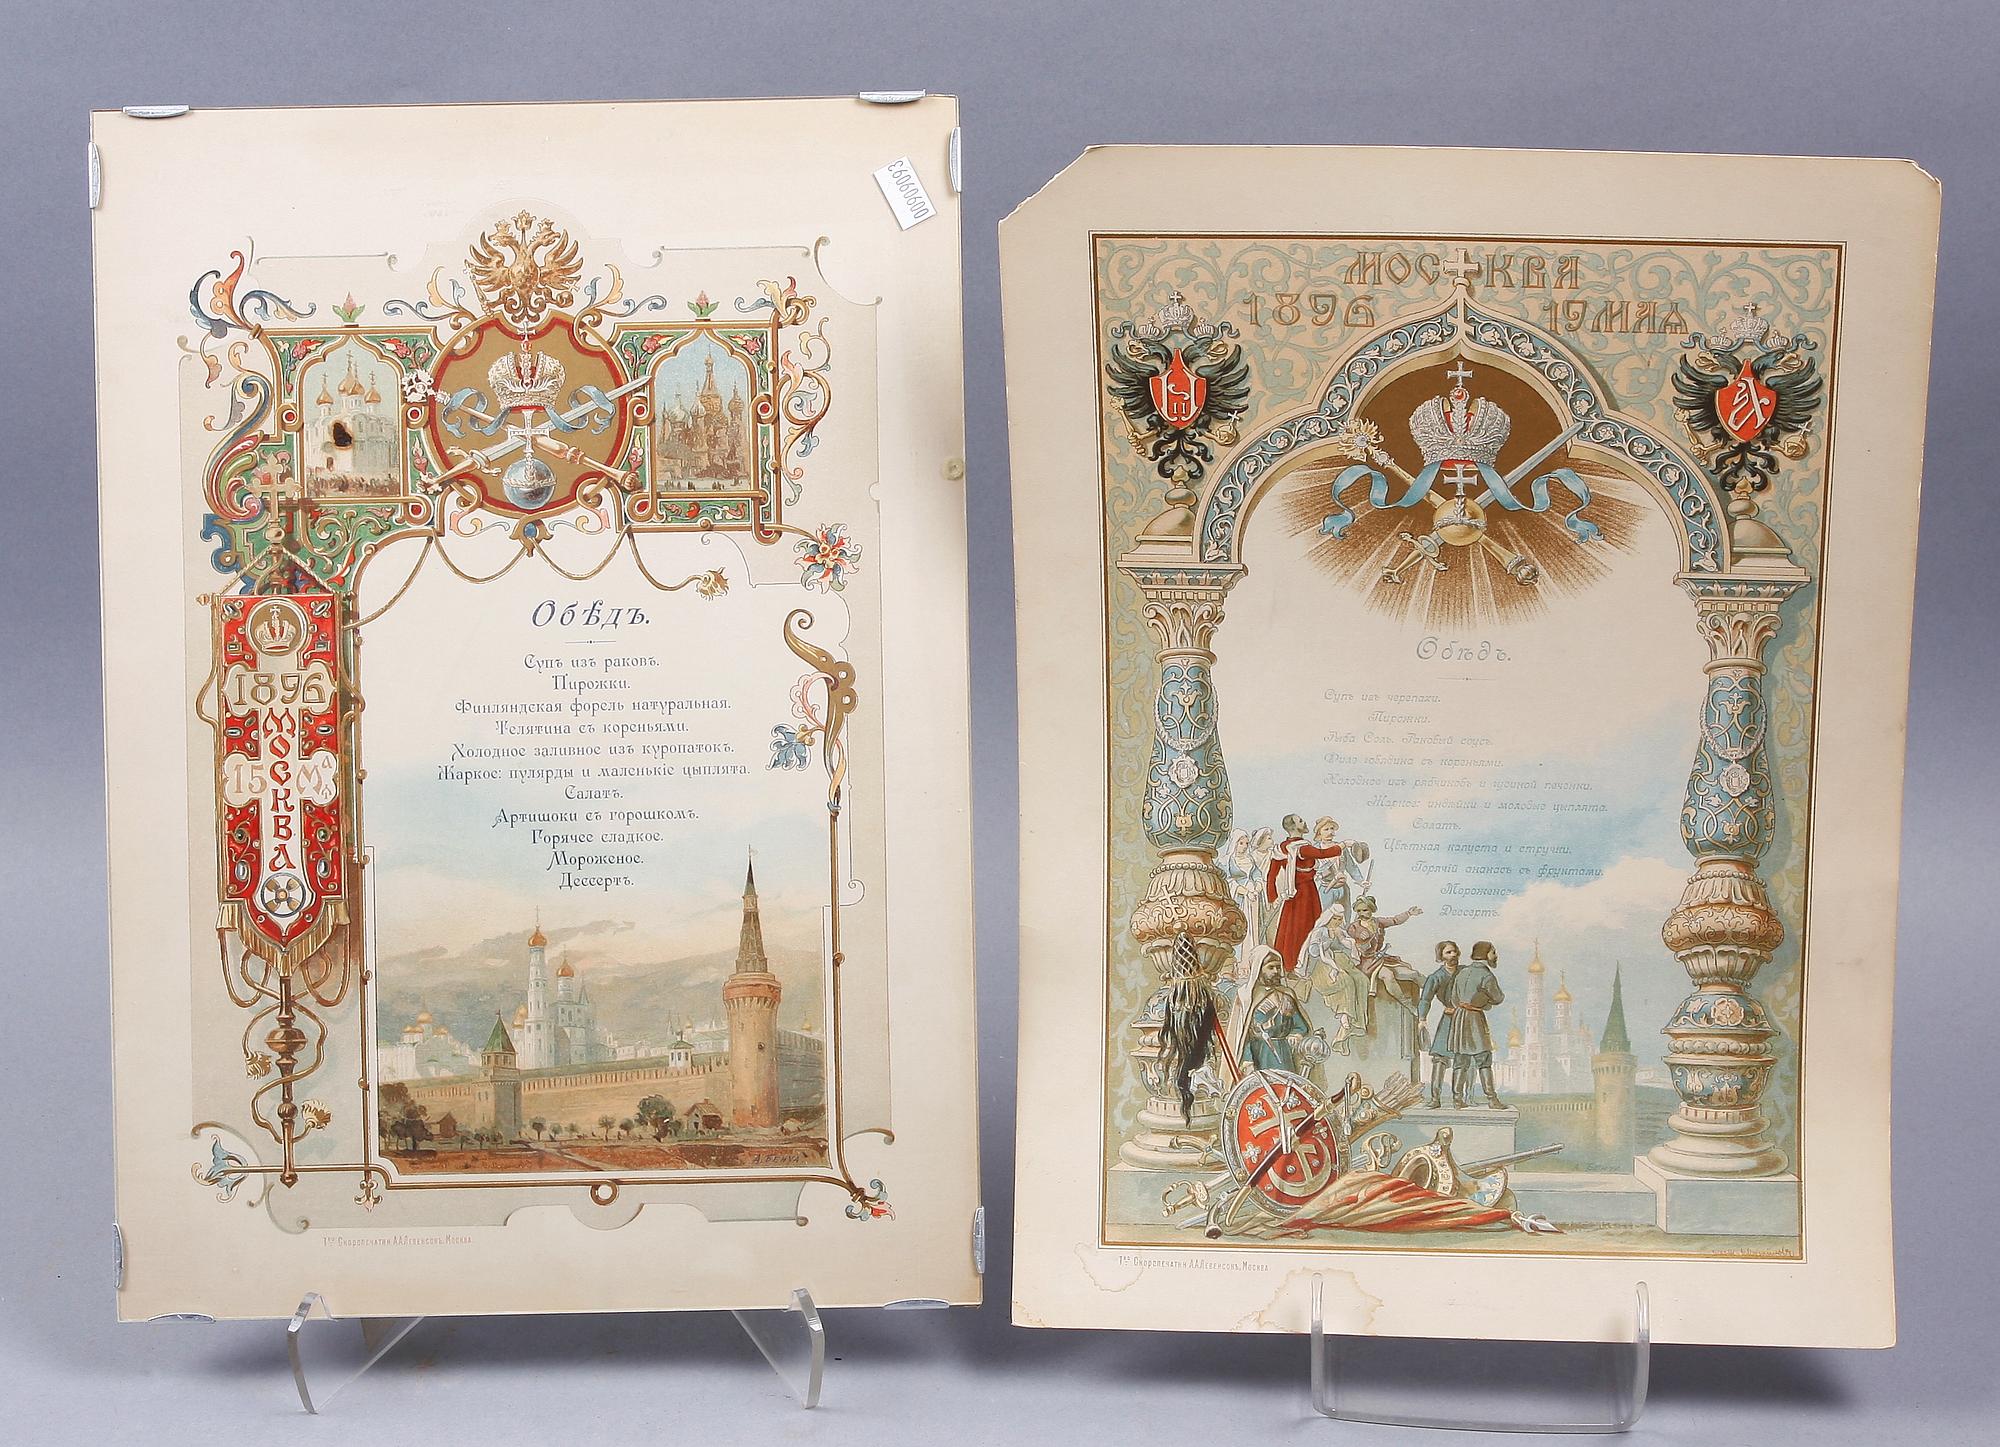 00909093
1896
МОСКВА
15 МАЯ
Обѣдъ.
Супъ изъ раковъ.
Пирожки.
Финляндская форель натуральная.
Телятина съ кореньями.
Холодное заливное изъ куропатокъ.
Жаркое: пулярды и маленькіе цыплята.
Салатъ.
Артишоки съ горошкомъ.
Горячее сладкое.
Мороженое.
Дессертъ.
А. БЕНУА
Т-во Скоропечатни А.А.Левенсонъ. Москва.
МОСКВА
1896 19 МАЯ
Обѣдъ.
Супъ изъ черепахи.
Пирожки.
Рыба Соль. Раковый соусъ.
Филе говядина съ кореньями.
Холодное изъ рябчиковъ и гусиной печенки.
Жаркое: индѣйки и молодые цыплята.
Салатъ.
Цвѣтная капуста и стручки.
Горячій ананасъ съ фруктами.
Мороженое.
Дессертъ.
А. БЕНУА
Т-во Скоропечатни А.А.Левенсонъ. Москва